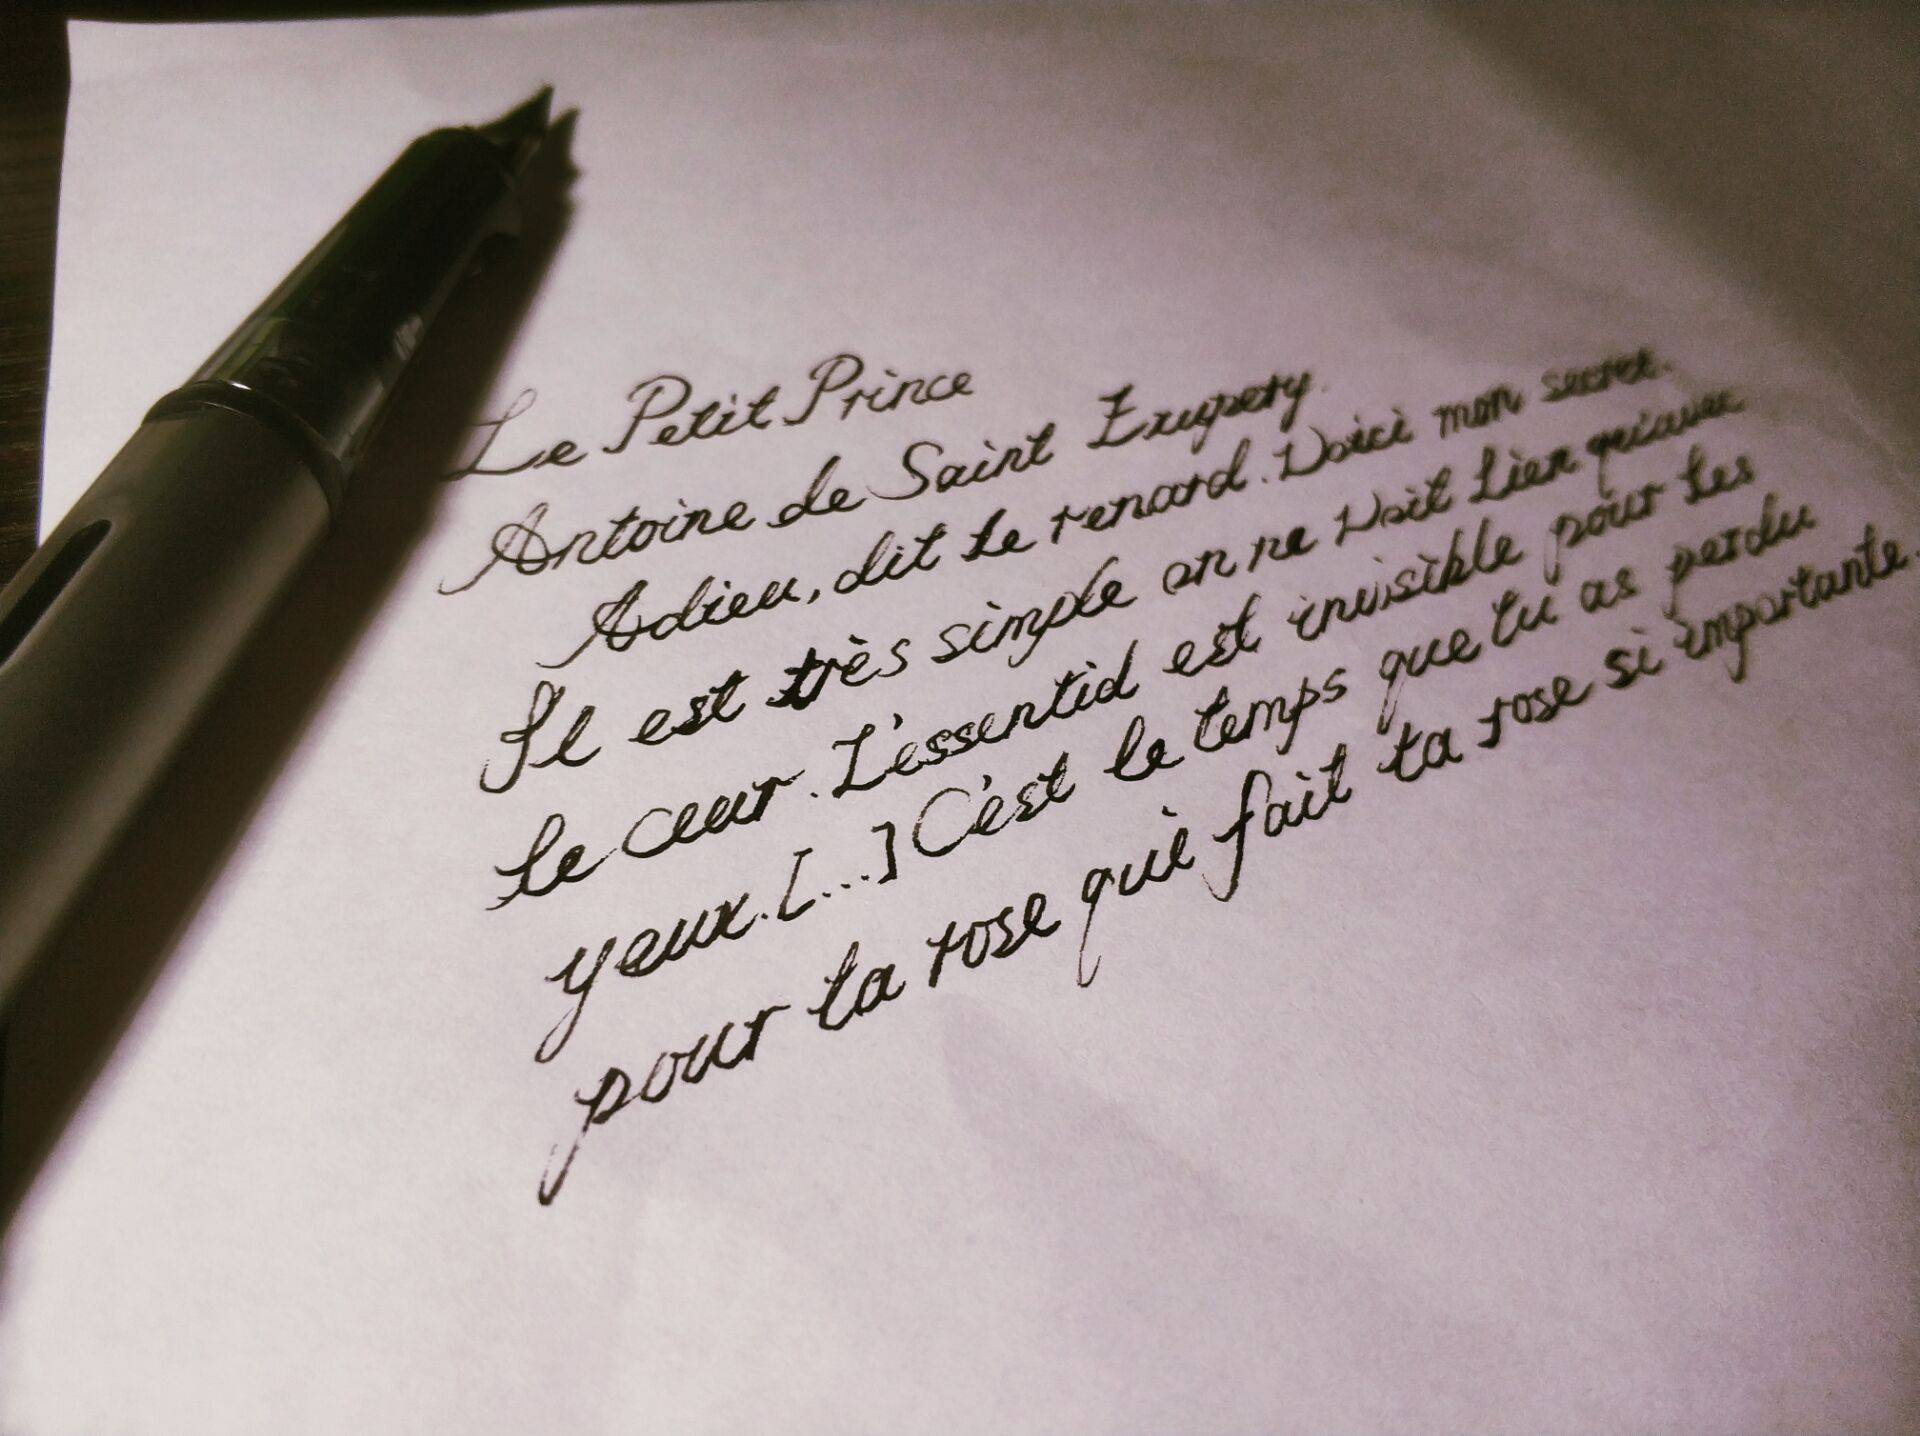 Le Petit Prince
Antoine de Saint Exupery.
Adieu, dit le renard. Voici mon secret.
Il est très simple on ne voit bien qu'avec
le cœur. L'essentiel est invisible pour les
yeux. [...] C'est le temps que tu as perdu
pour ta rose qui fait ta rose si importante.